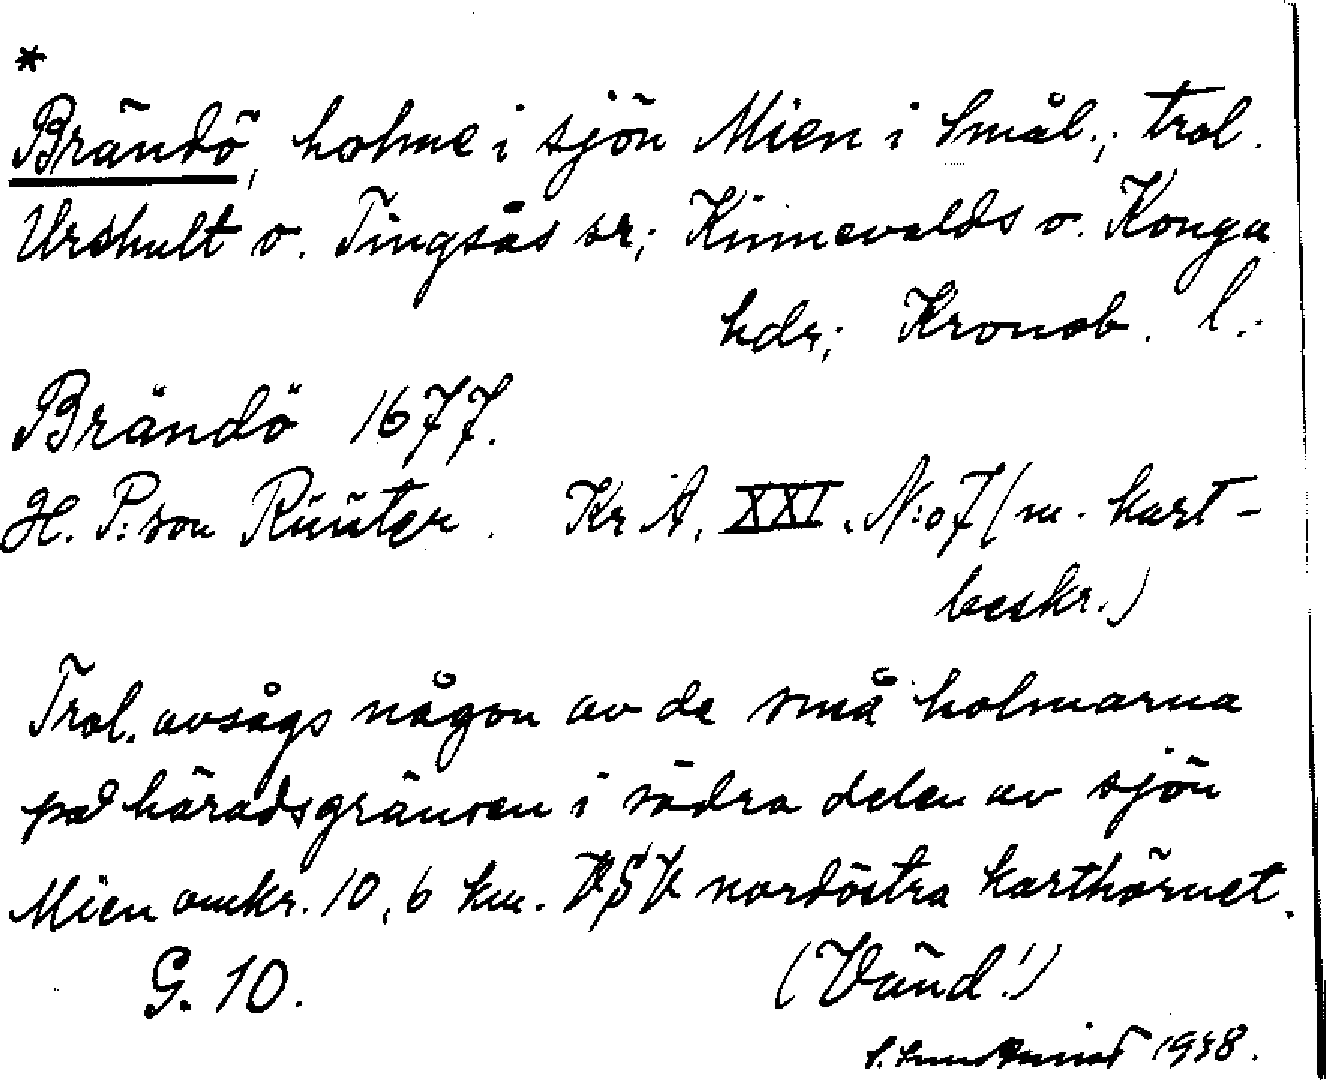 *
Brändö, holme i sjön Mien i Smål.; trol.
Urshult o. Tingsås sr; Kinnevalds o. Konga
hdr; Kronob. l.
Brändö 1677.
H. P:son Rüüter. Kr A. XXI. N:o 7 (m. kart-
beskr.)
Trol. avsågs någon av de små holmarna
på häradsgränsen i södra delen av sjön
Mien omkr. 10,6 km. VSV nordöstra karthörnet.
G. 10. (Vänd!)
1938.